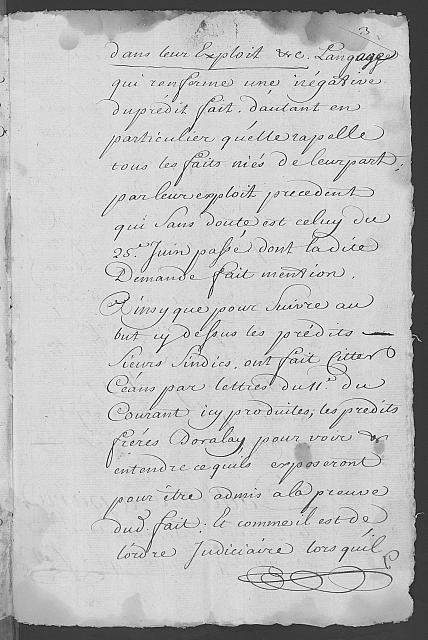 3
dans leur Exploit &c. Langage
qui renferme une négative
du prédit fait. dautant en
particulier qu'elle rapelle
tous les faits niés de leur part;
par leur exploit precedent
qui Sans doute est celuy du
25.e Juin passé dont la dite
Demande fait mention.
Ainsy que pour Suivre au
but cy dessus les prédits
Sieurs Sindics, ont fait Citter
Céans par lettres du 11.e du
Courant icy produites, les predits
fréres Doralay pour voir &
entendre ce quils exposeront
pour être admis a la preuve
dud. fait. Et comme il est de
l'ordre Judiciaire lors quil